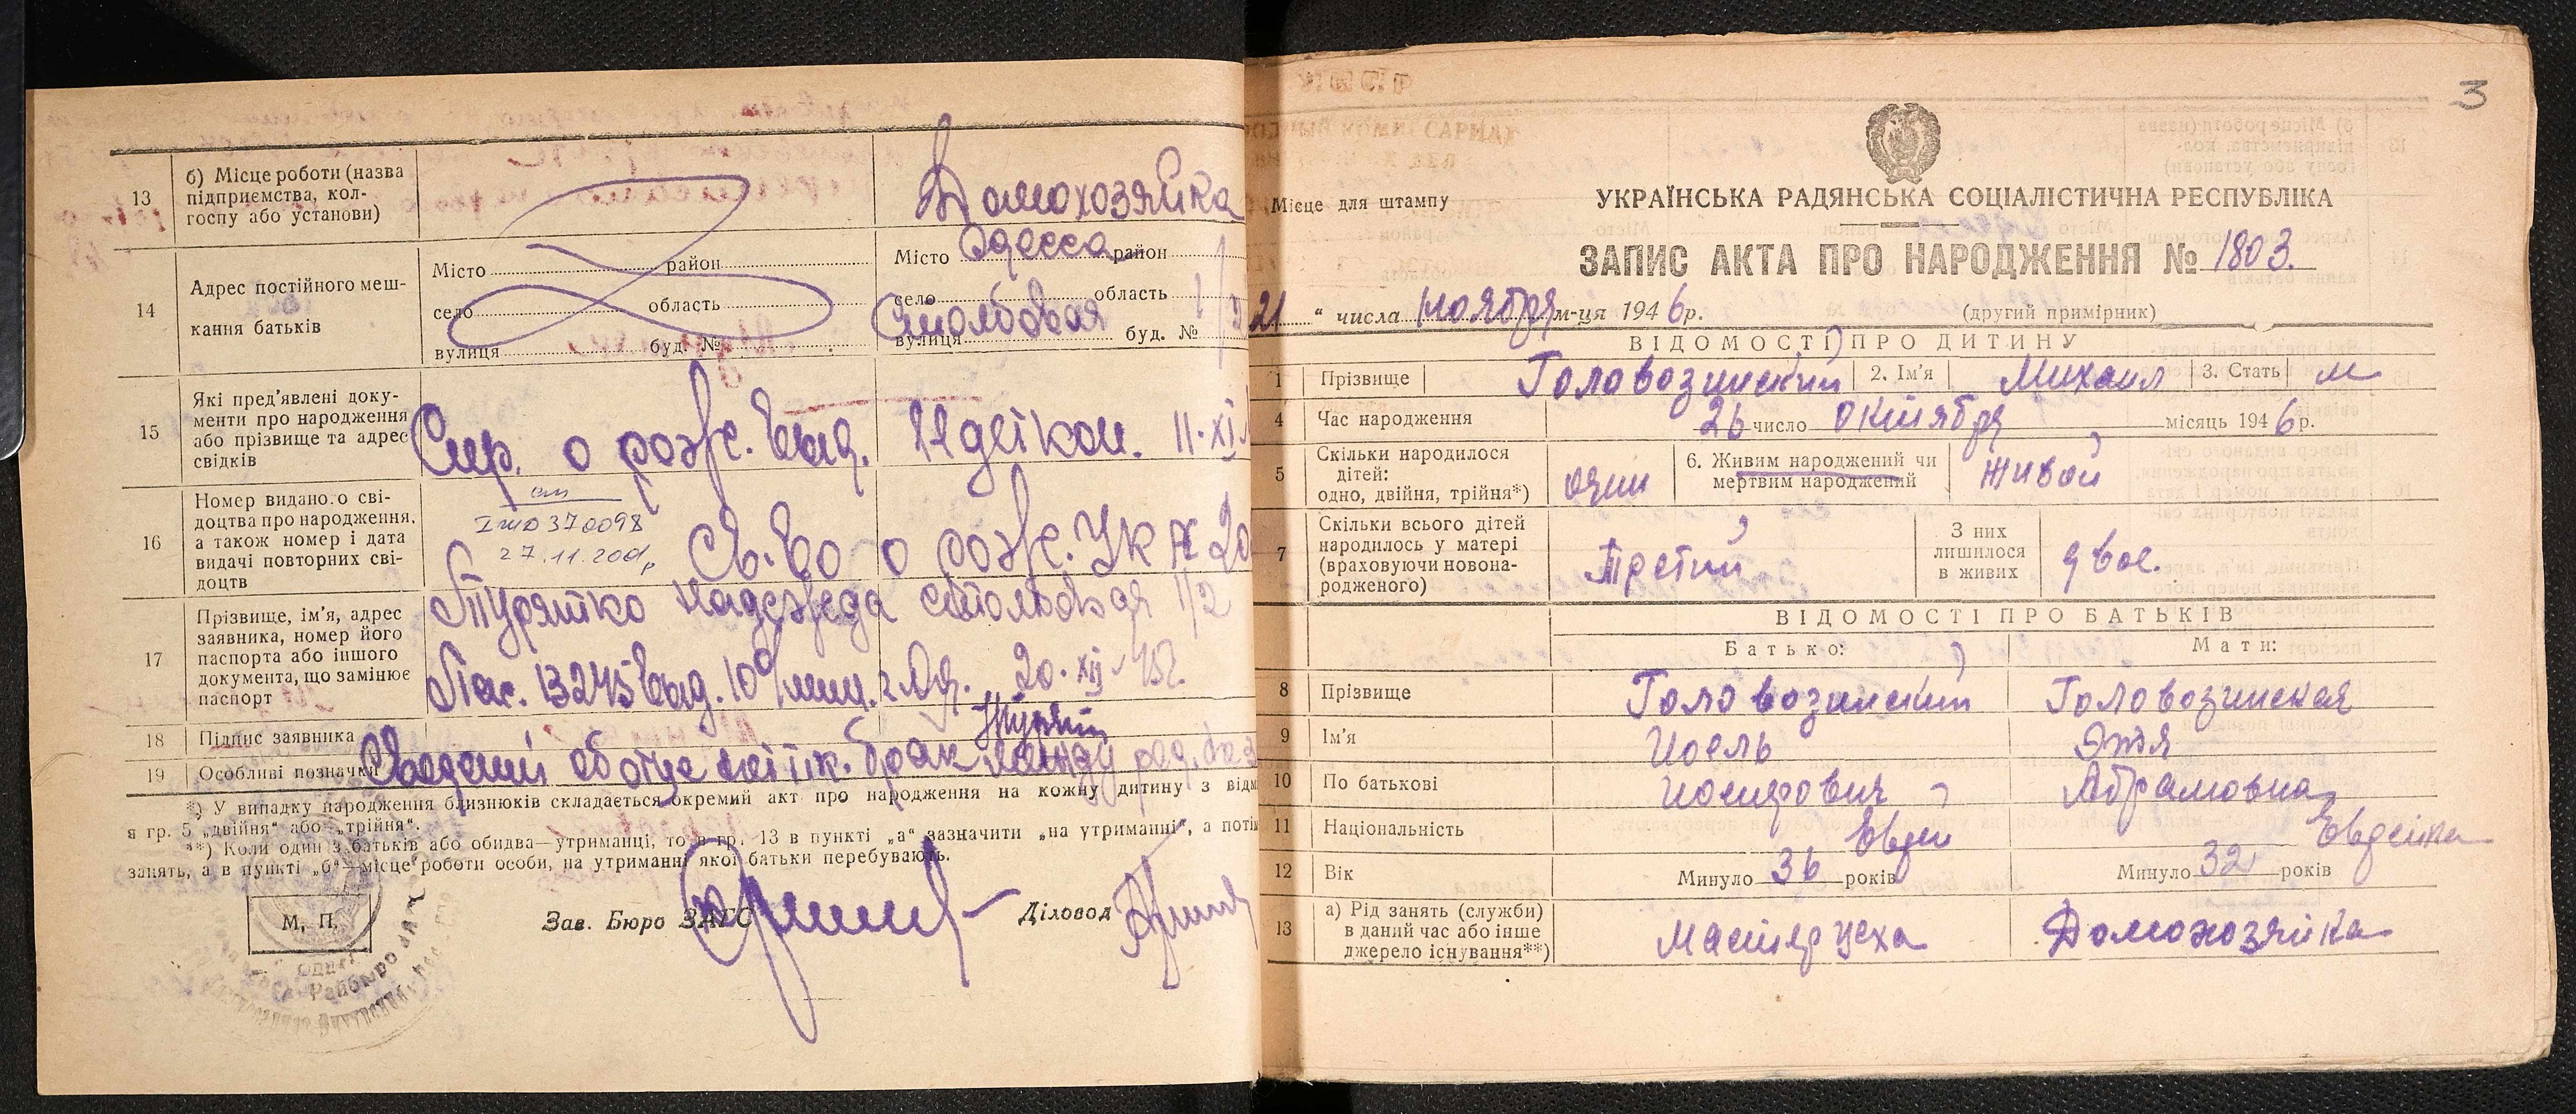 13
б) Місце роботи (назва
підприємства, кол-
госпу або установи)
Домохозяйка
14
Адрес постійного меш-
кання батьків
Місто район
село область
вулиця буд. №
Місто Одесса район
село область
Столбовая
вулиця буд. №
15
Які пред'явлені доку-
менти про народження
або прізвище та адрес
свідків
Спр. о рожд. выд. 11 XI
16
Номер видано.о сві-
доцтва про народження,
а також номер і дата
видачі повторних сві-
доцтв
370098
27.11.2001р
Св-во о рожд. УК
17
Прізвище, ім'я, адрес
заявника, номер його
паспорта або іншого
документа, що замінює
паспорт
Надежда Столбовая 1/2
Пас. выд. 10 мил. г. Од. 20. XII 45г.
18
Підпис заявника
19
Особливі позначки
Сведений об отце брак между
*) У випадку народження близнюків складається окремий акт про народження на кожну дитину з відм
я гр. 5 „двійня“ або „трійня“.
**) Коли один з батьків або обидва—утриманці, то в гр. 13 в пункті „а“ зазначити „на утриманні“, а поті
занять, а в пункті „б“—місце роботи особи, на утриманні якої батьки перебувають.
М. П.
Зав. Бюро ЗАГС
Діловод
3
Місце для штампу
УКРАЇНСЬКА РАДЯНСЬКА СОЦІАЛІСТИЧНА РЕСПУБЛІКА
ЗАПИС АКТА ПРО НАРОДЖЕННЯ № 1803.
21 “ числа ноября м-ця 1946р.
(другий примірник)
ВІДОМОСТІ ПРО ДИТИНУ
1 Прізвище Головозинский 2. Ім'я Михаил 3. Стать м
4 Час народження 26 число октября місяць 1946р.
5
Скільки народилося
дітей:
одно, двійня, трійня*)
один
6. Живим народжений чи
мертвим народжений
живой
7
Скільки всього дітей
народилось у матері
(враховуючи новона-
родженого)
Третий
З них
лишилося
в живих
двое.
ВІДОМОСТІ ПРО БАТЬКІВ
Батько: Мати:
8 Прізвище Головозинский Головозинская
9 Ім'я Иоель Этя
10 По батькові Иосифович Абрамовна
11 Національність Еврей Еврейка
12 Вік Минуло 36 років Минуло 32 років
13
а) Рід занять (служби)
в даний час або інше
джерело існування**)
Мастер цеха Домохозяйка